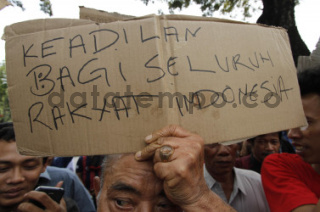 KEADILAN
BAGI SELURUH
RAKYAT INDONESIA
datatempo.co